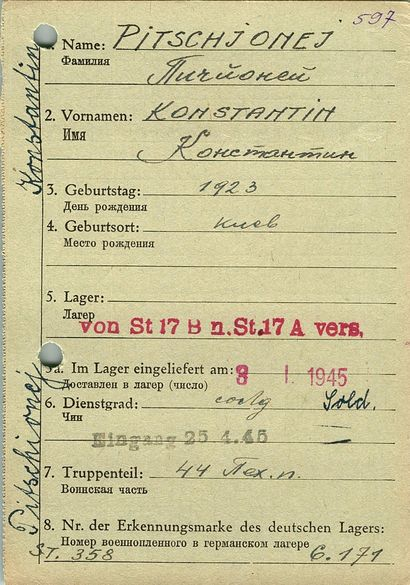 597
1. Name: PITSCHJONEJ
Фамилия
Пичйоней
2. Vornamen: KONSTANTIN
Имя
Константин
3. Geburtstag: 1923
День рождения
4. Geburtsort: Киев
Место рождения
5. Lager:
Лагер
von St 17 B n. St. 17 A vers.
5a. Im Lager eingeliefert am: 8 I. 1945
Доставлен в лагер (число)
6. Dienstgrad: Sold.
Чин
Eingang 25.4.45
7. Truppenteil: 44 Пех. п.
Воинская часть
8. Nr. der Erkennungsmarke des deutschen Lagers:
Номер военнопленного в германском лагере
ST. 358 6.171
Konstantin
Pitschjonej